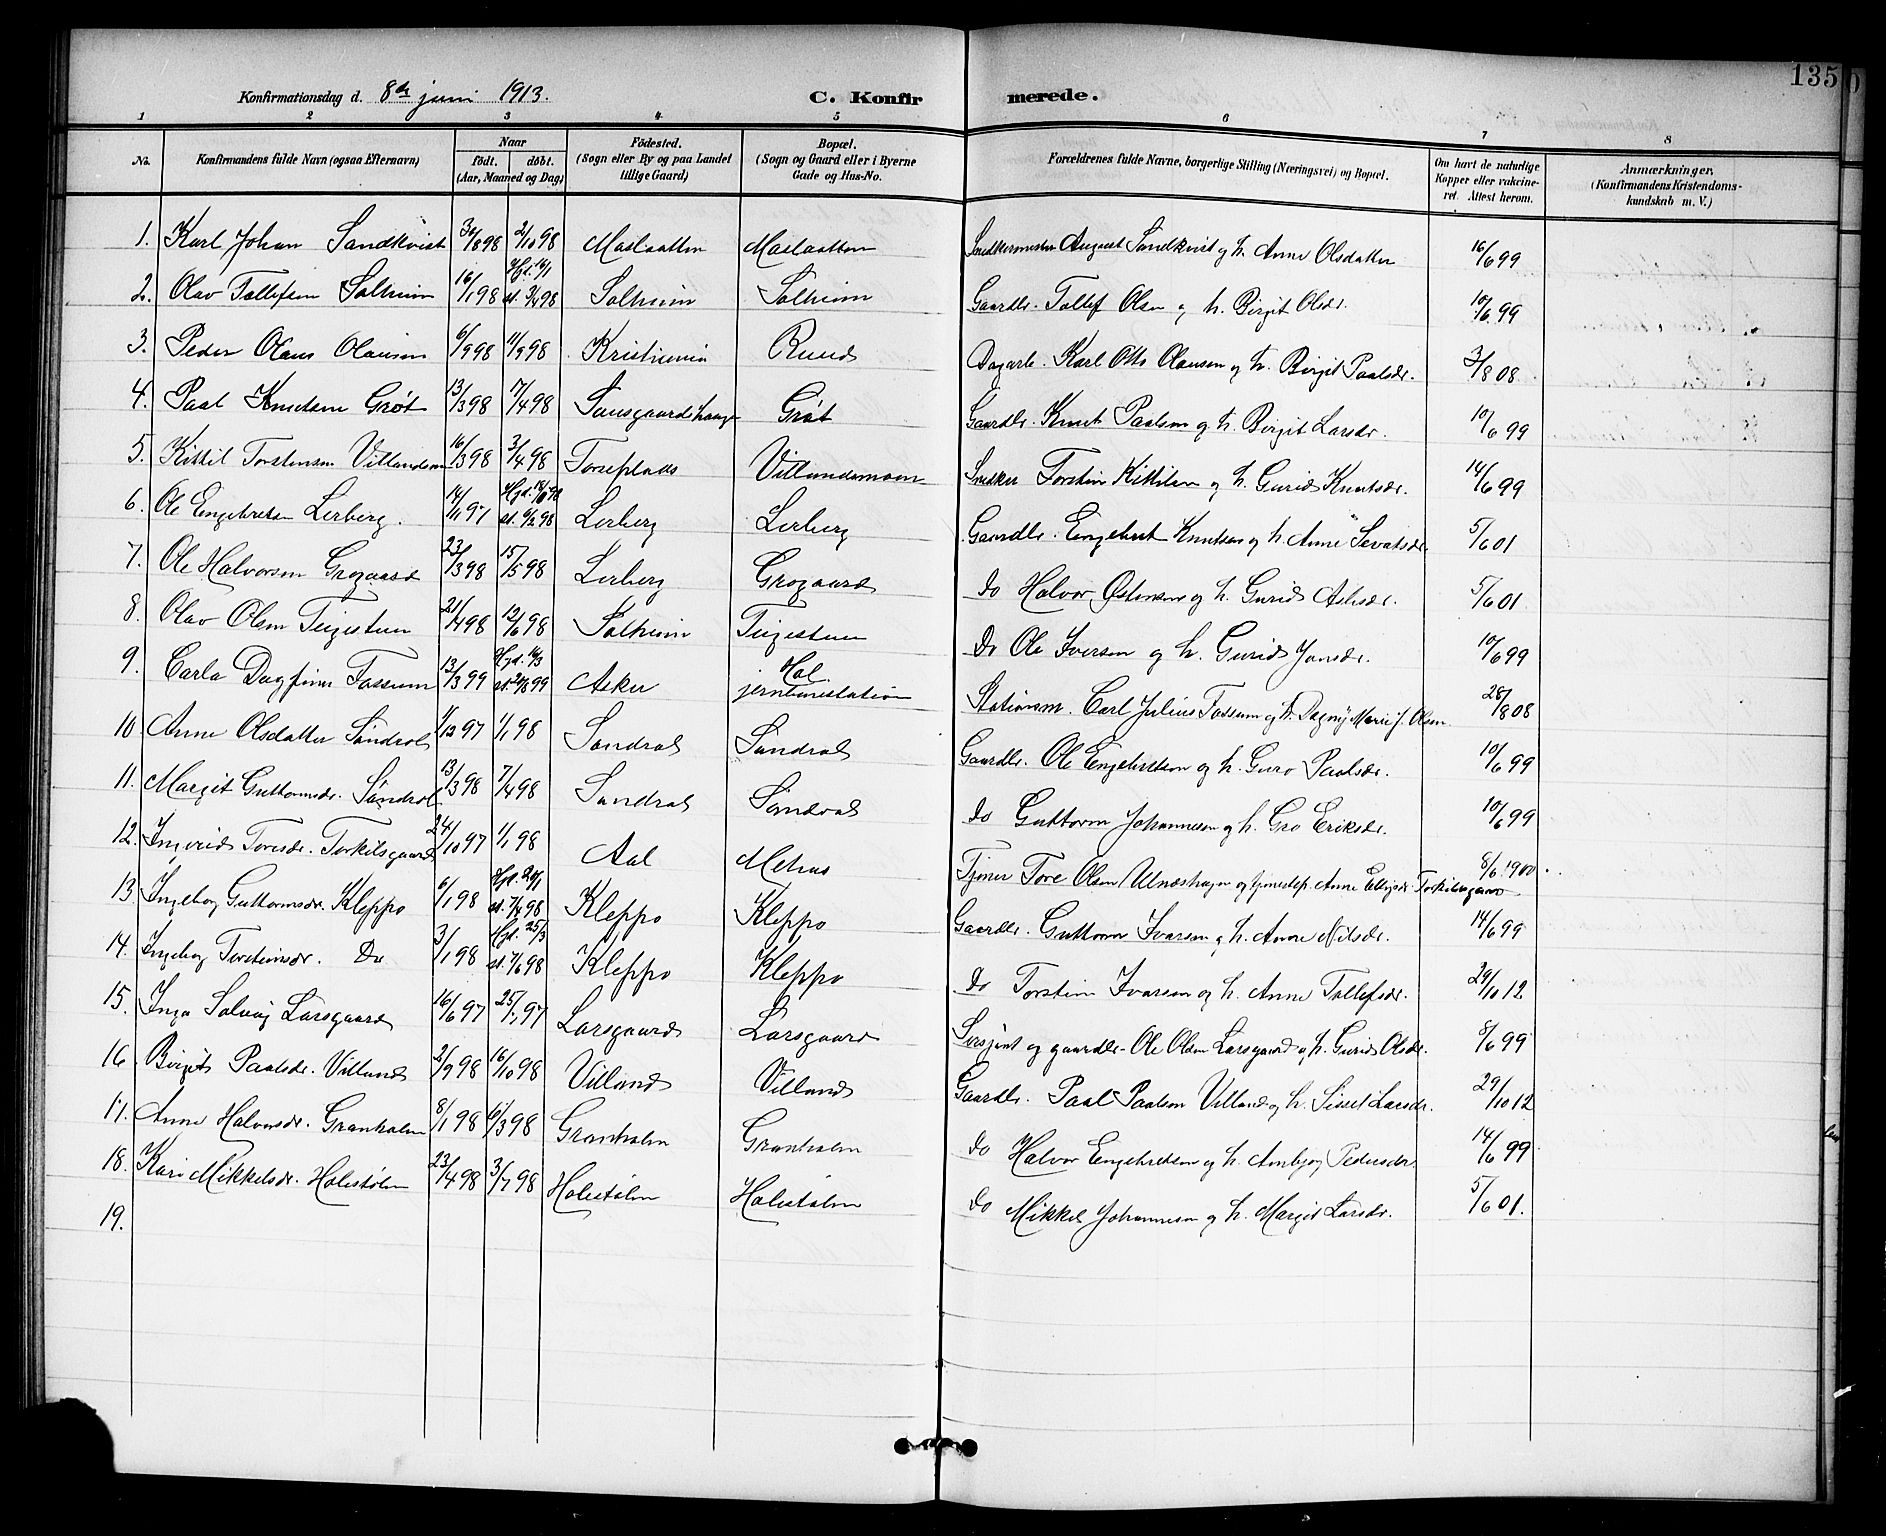 135
Konfirmationsdag d. 8de juni 1913. C. Konfirmerede.
1 2 3 4 5 6 7 8
No. Konfirmandens fulde Navn (ogsaa Efternavn) Naar födt. döbt. (Aar, Maaned og Dag) Födested. (Sogn eller By og paa Landet tillige Gaard) Bopæl. (Sogn og Gaard eller i Byerne Gade og Hus-No. Forældrenes fulde Navne, borgerlige Stilling (Næringsvei) og Bopæl. Om havt de naturlige Kopper eller vakcineret. Attest herom. Anmærkninger. (Konfirmandens Kristendomskundskab m. V.)
1. Karl Johan Sandkvist 30/8 98 2/10 98 Maslaatten Maslaatten Snedkermester August Sandkvist og h. Anne Olsdatter 16/6 99
2. Olav Tollefsen Solheim 16/1 98 Hjd. 16/1 st. 3/4 98 Solheim Solheim Gaardbr. Tollef Olsen og h. Birgit Olsdr. 10/6 99
3. Peder Olaus Olausen 6/9 98 11/9 98 Kristiania Ruud Dagarb. Karl Otto Olausen og h. Birgit Paalsdr. 3/8 08
4. Paal Knutsen Grøt 13/3 98 17/4 98 Grøt Gaardbr. Knut Paalsen og h. Birgit Larsdr. 10/6 99
5. Kittil Torstensen Villandsmoen 16/3 98 3/4 98 Torseplads Villandsmoen Snedker Torstein Kittilsen og h. Gurid Knutsdr. 14/6 99
6. Ole Engebretsen Lerberg. 14/11 97 st. 6/2 98 Lerberg Lerberg Gaardbr. Engebret Knutsen og h. Anne Sevatsdr. 5/6 01
7. Ole Halvorsen Grøgaard 23/3 98 15/5 98 Lerberg Grøgaard do Halvor Østensen og h. Gurid Aslesdr. 5/6 01
8. Olav Olsen Teigestuen 21/4 98 12/6 98 Solheim Teigestuen Do Ole Iversen og h. Gurid Jonsdr. 10/6 99
9. Carlo Dagfinn Fossum 13/3 99 Hjd. 16/3 st. 20/8 99 Asker Hol jernbanestation Stationsm. Carl Julius Fossum og h. Dagny Marie J. Olsen 28/8 08
10 Anne Olsdatter Sundrol 1/12 97 1/1 98 Sundrol Sundrol Gaardbr. Ole Engebretsen og h. Guro Paalsdr. 10/6 99
11. Margit Guttormsdr. Sundrol 13/3 98 7/4 98 Sundrol Sundrol do Guttorm Johannesen og h. Gro Eriksdr. 10/6 99
12. Ingerid Toresdr. Torkilsgaard 24/10 97 1/1 98 Aal Mehus Tjener Tore Olsen Ulneshagen og tjenestep. Anne Ellefsdr. Torkilsgaard 8/6 1900
13. Ingebog Guttormsdr. Kleppo 6/1 98 Hjd. 20/1 st. 7/4 98 Kleppo Kleppo Gaardbr. Guttorm Ivarsen og h. Anne Nilsdr. 14/6 99
14. Ingebog Torsteinsdr. Do 3/1 98 Hjd. 25/3 st. 7/6 98 Kleppo Kleppo do Torstein Ivarsen og h. Anne Tollefsdr. 29/10 12
15. Inga Solveig Larsgaard 16/6 97 25/7 97 Larsgaard Larsgaard Sersjant og gaardbr. Ole Olsen Larsgaard og h. Gurid Olsdr. 8/6 99
16 Birgit Paalsdr. Villand 2/9 98 16/10 98 Villand Villand Gaardbr. Paal Paalsen Villand og h. Sissel Larsdr. 29/10 12
17. Anne Halvorsdr. Granhalm 8/1 98 6/3 98 Granhalm Granhalm do Halvor Engebretsen og h. Ambjøg Pedersdr. 14/6 99
18. Kari Mikkelsdr. Holestølen 23/4 98 3/7 98 Holestølen Holestølen do Mikkel Johannesen og h. Margit Larsdr. 5/6 01.
19.